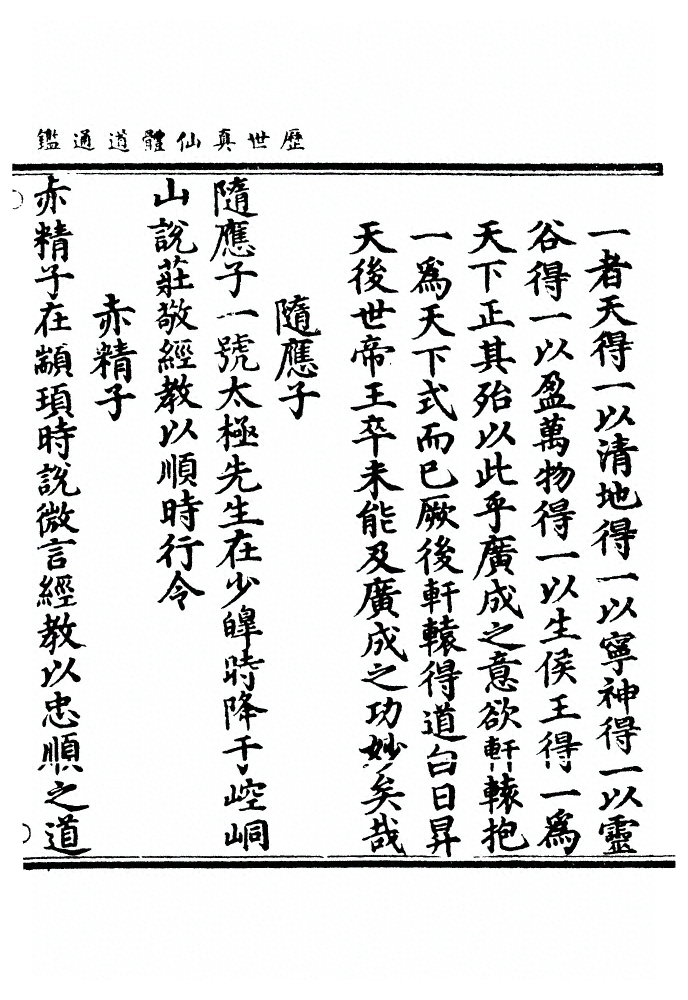 歷世真仙體道通鑑
一者天得一以清地得一以寧神得一以靈
谷得一以盈萬物得一以生侯王得一為
天下正其殆以此乎廣成之意欲軒轅抱
一爲天下式而已厥後軒轅得道白日昇
天後世帝王卒未能及廣成之功妙矣哉
隨應子
隨應子一號太極先生在少皥時降于崆峒
山說莊敬經教以順時行令
赤精子
赤精子在顓頊時說微言經教以忠順之道